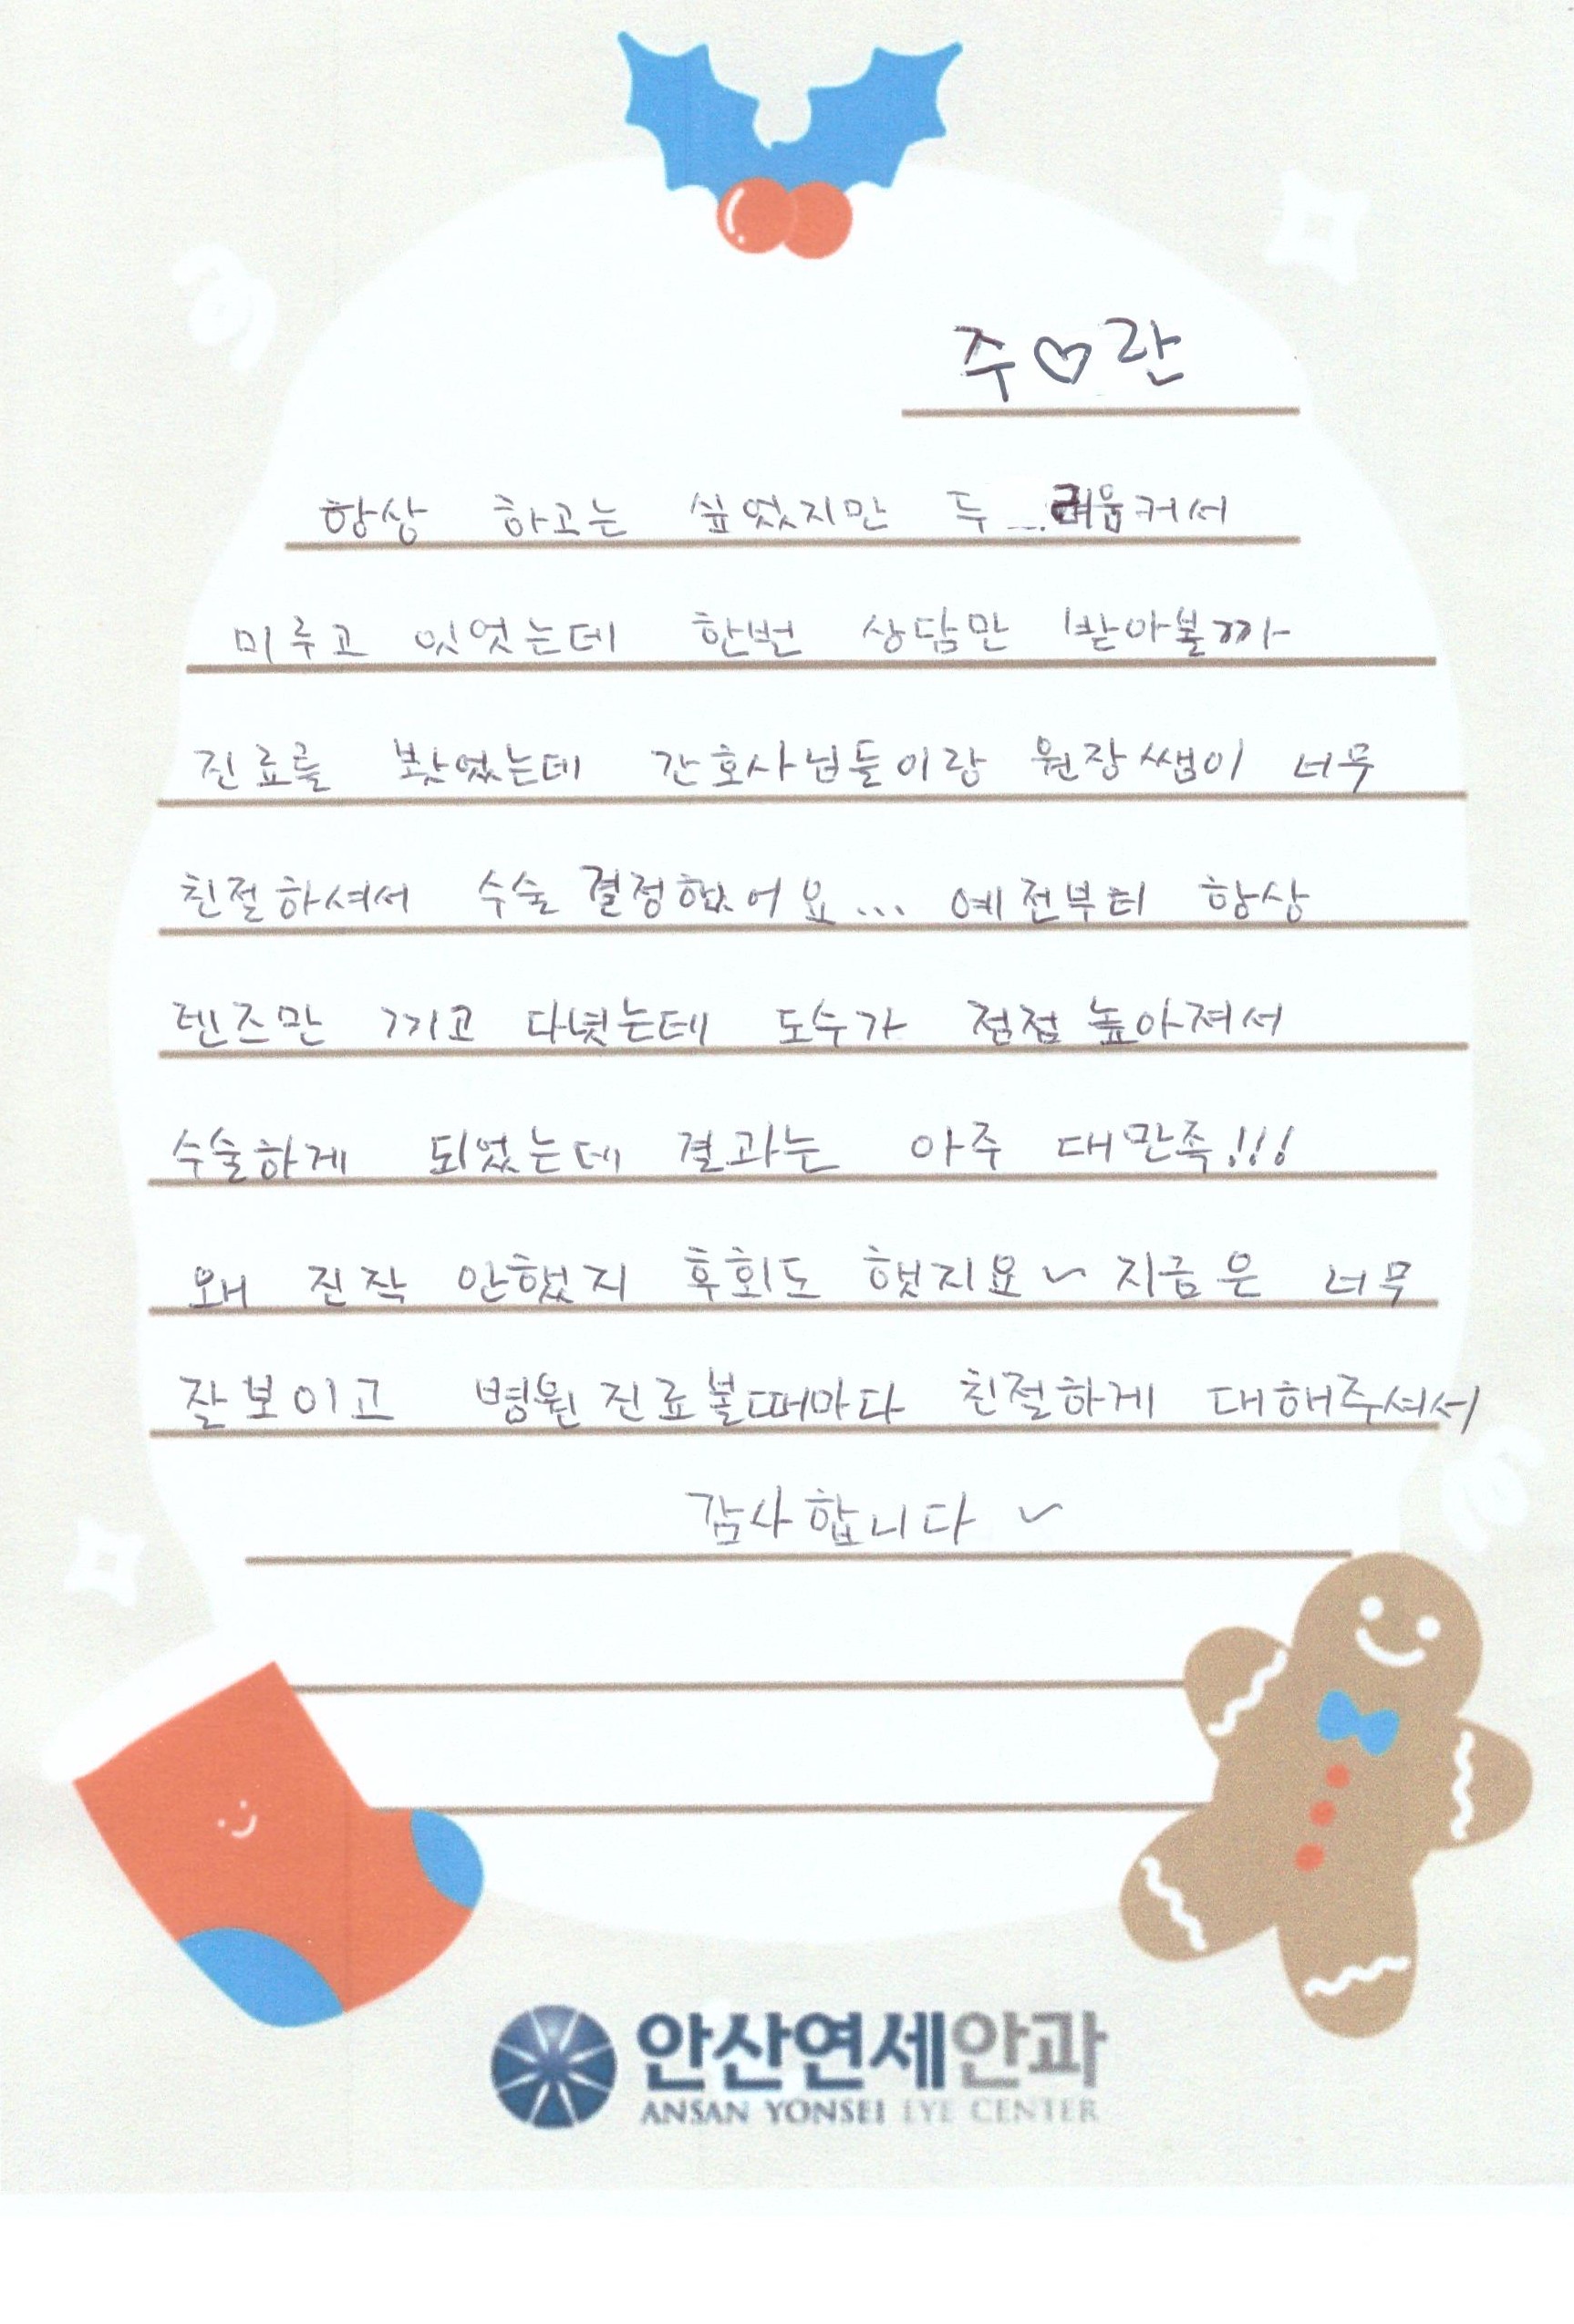 주♡란
항상 하고는 싶었지만 두...려움커서
미루고 있엇는데 한번 상담만 받아볼까
진료를 봤었는데 간호사님들이랑 원장쌤이 너무
친절하셔서 수술 결정했어요... 예전부터 항상
렌즈만 끼고 다녓는데 도수가 점점 높아져서
수술하게 되었는데 결과는 아주 대만족!!!
왜 진작 안했지 후회도 했지요~ 지금은 너무
잘보이고 병원 진료볼때마다 친절하게 대해주셔서
감사합니다 ~
안산연세안과
ANSAN YONSEI EYE CENTER